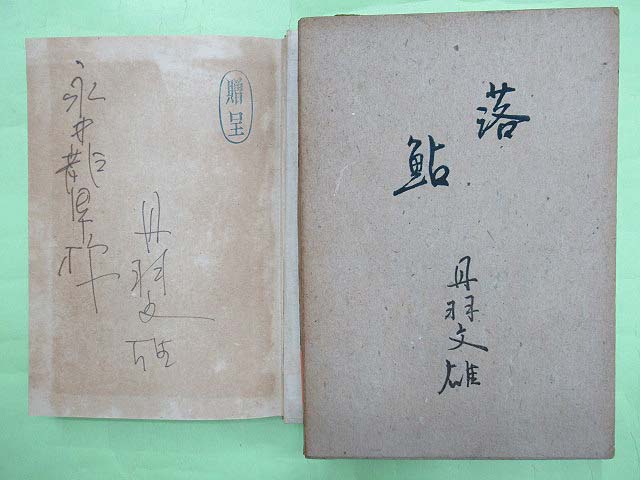 落
鮎
丹羽文雄
贈呈
永井龍男様
丹羽文雄